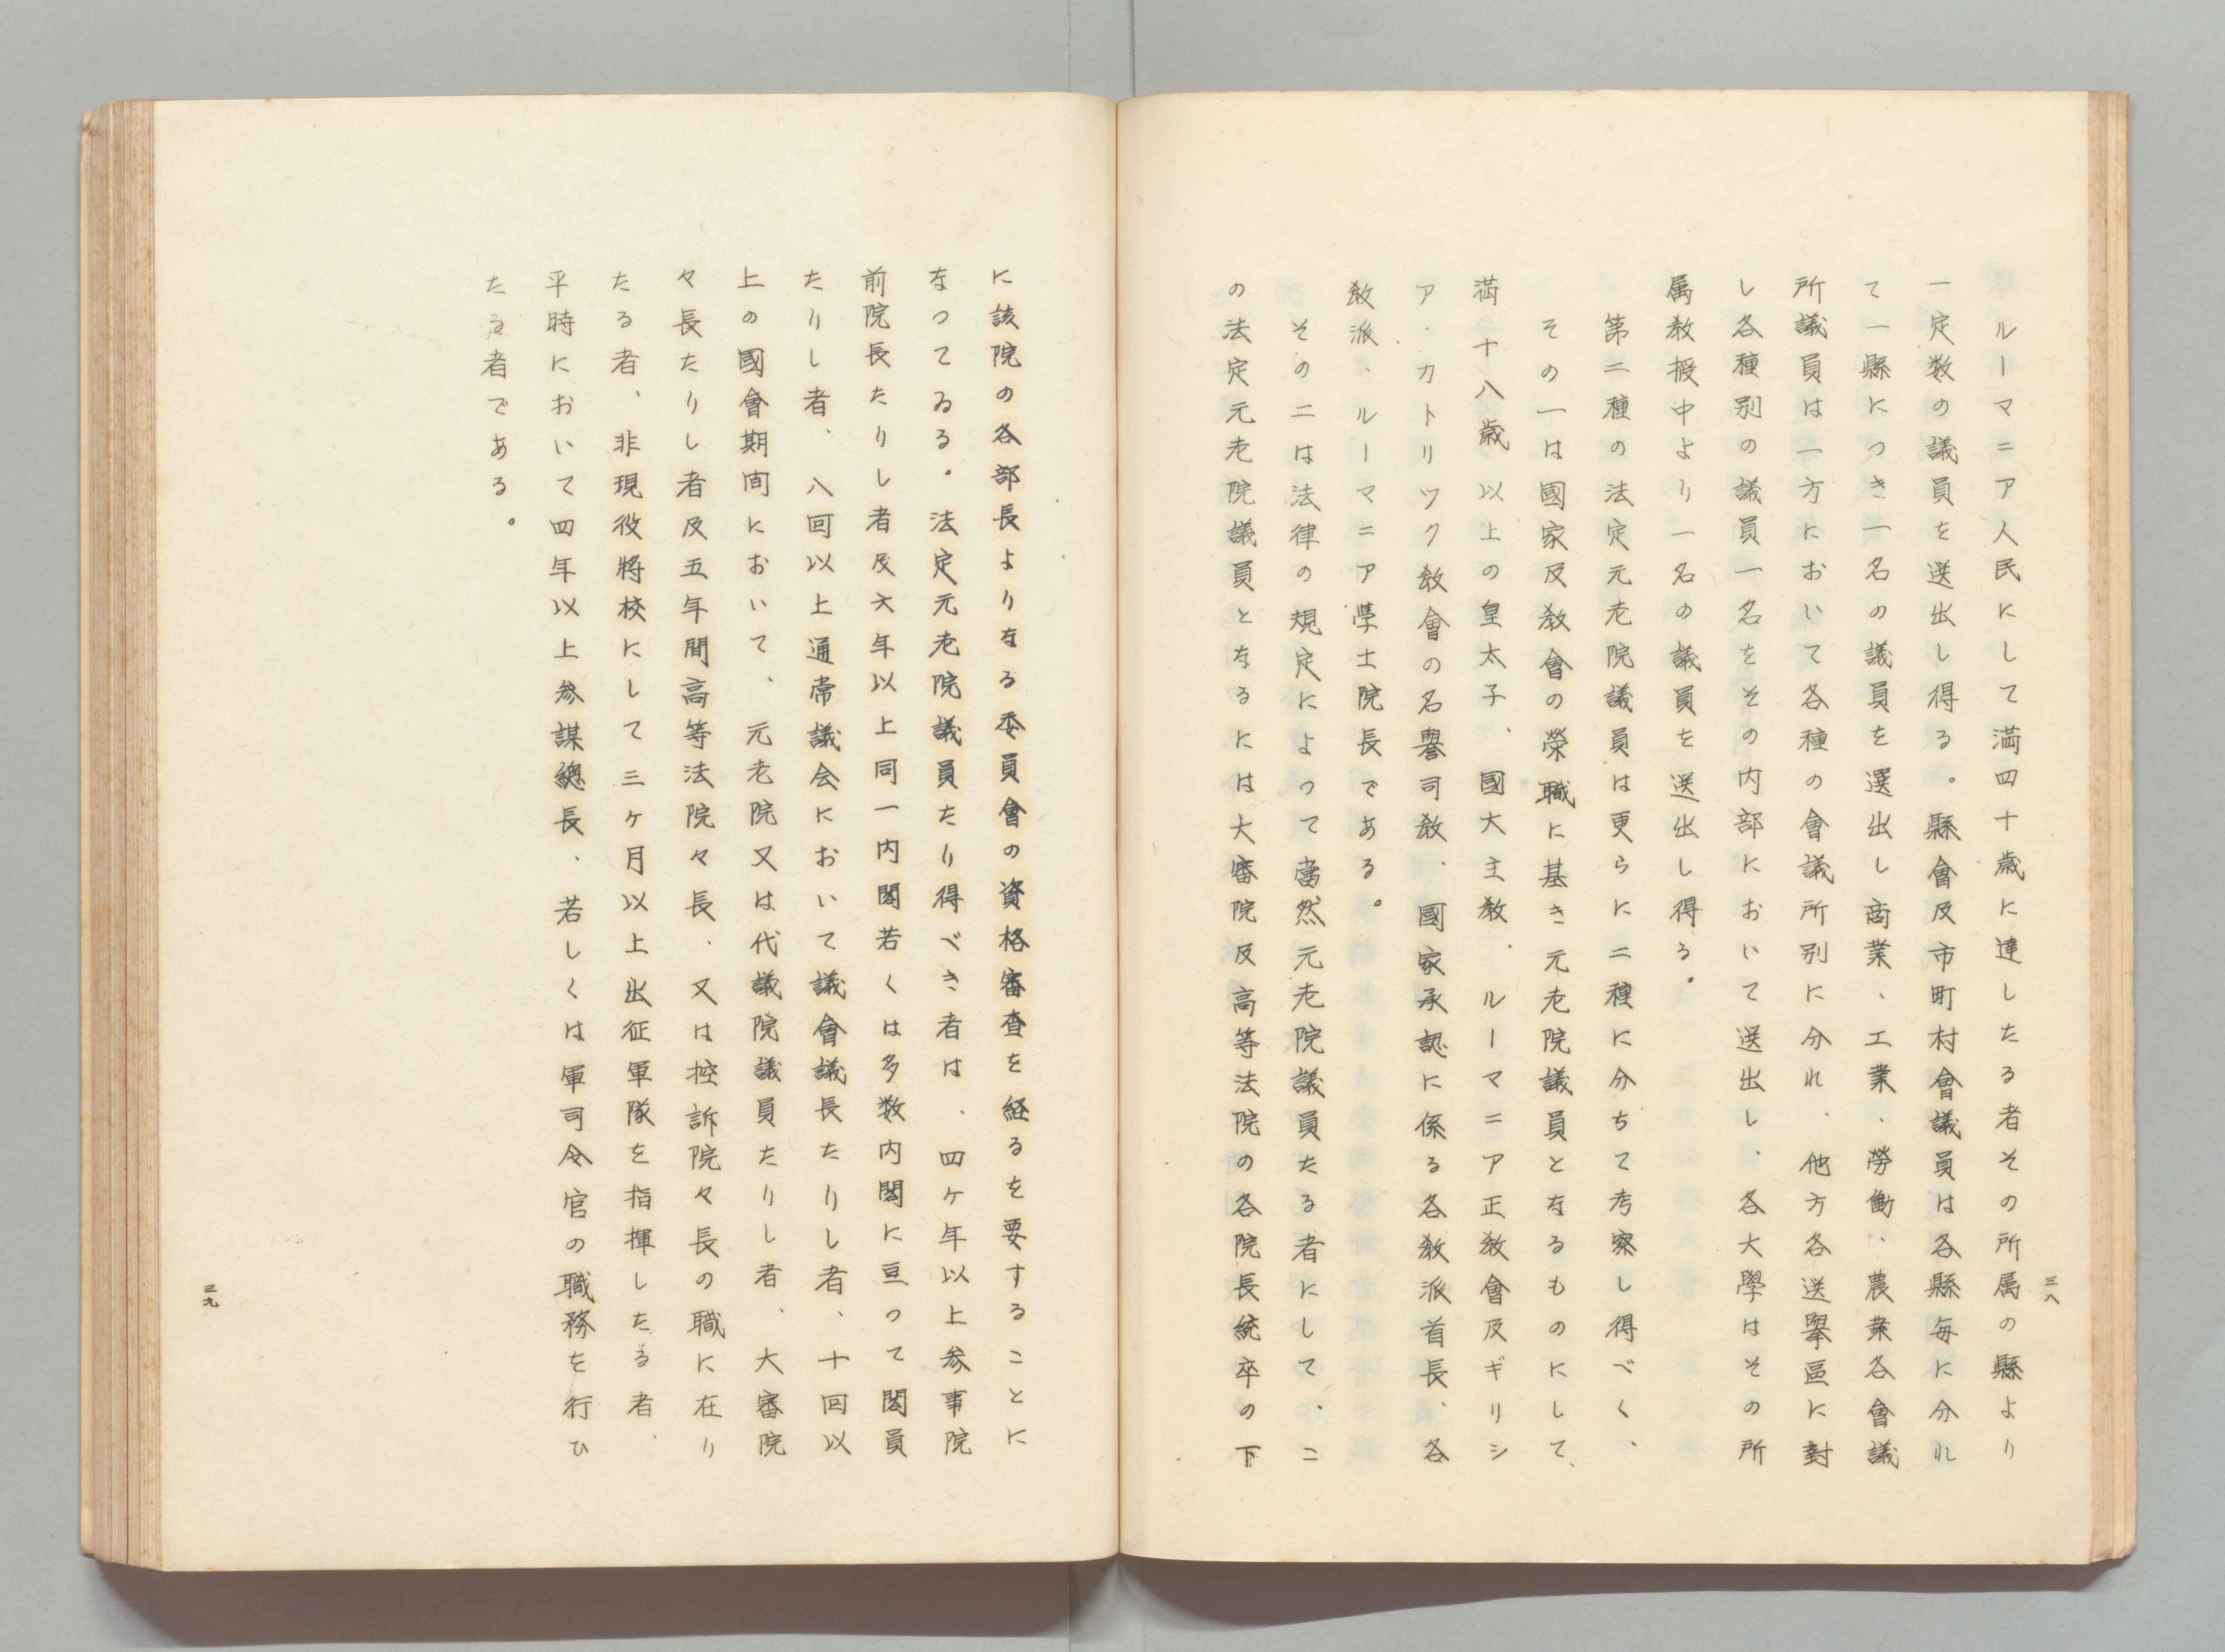 三八
ルーマニア人民にして満四十歳に達したる者その所属の縣より
一定数の議員を送出し得る。縣會及市町村會議員は各縣毎に分れ
て一縣につき一名の議員を選出し商業、工業、勞働、農業各會議
所議員は一方において各種の會議所別に分れ、他方各送擧區に對
し各種別の議員一名をその内部において送出し、各大學はその所
属教授中より一名の議員を送出し得る。
第二種の法定元老院議員は更らに二種に分ちて考察し得べく、
その一は國家及教會の榮職に基き元老院議員となるものにして、
満十八歳以上の皇太子、國大主教、ルーマニア正教會及ギリシ
ア・カトリツク教會の名譽司教、國家承認に係る各教派首長、各
教派、ルーマニア學士院長である。
その二は法律の規定によって當然元老院議員たる者にして、こ
の法定元老院議員となるには大審院及高等法院の各院長統卒の下
に該院の各部長よりなる委員會の資格審査を経るを要することに
なってゐる。法定元老院議員たり得べき者は、四ヶ年以上参事院
前院長たりし者及六年以上同一内閣若くは多数内閣に亘って閣員
たりし者、八回以上通常議会において議會議長たりし者、十回以
上の國會期間において、元老院又は代議院議員たりし者、大審院
々長たりし者及五年間高等法院々長、又は控訴院々長の職に在り
たる者、非現役將校にして三ヶ月以上出征軍隊を指揮したる者、
平時において四年以上参謀總長、若しくは軍司令官の職務を行ひ
たる者である。
三九